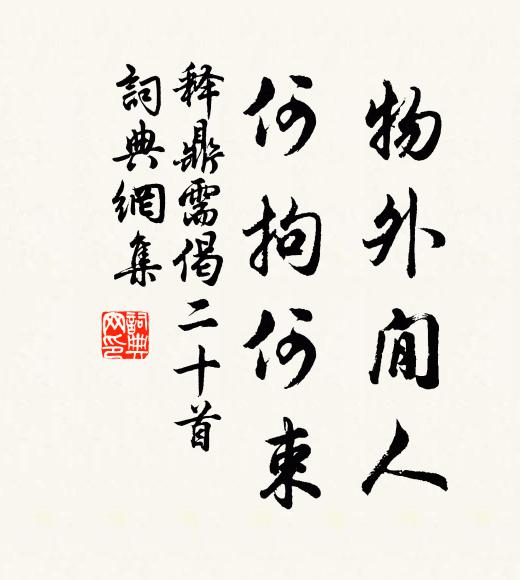 物外閒人
何拘何束
释鼎需偈二十首
詞典網集
詞典網印